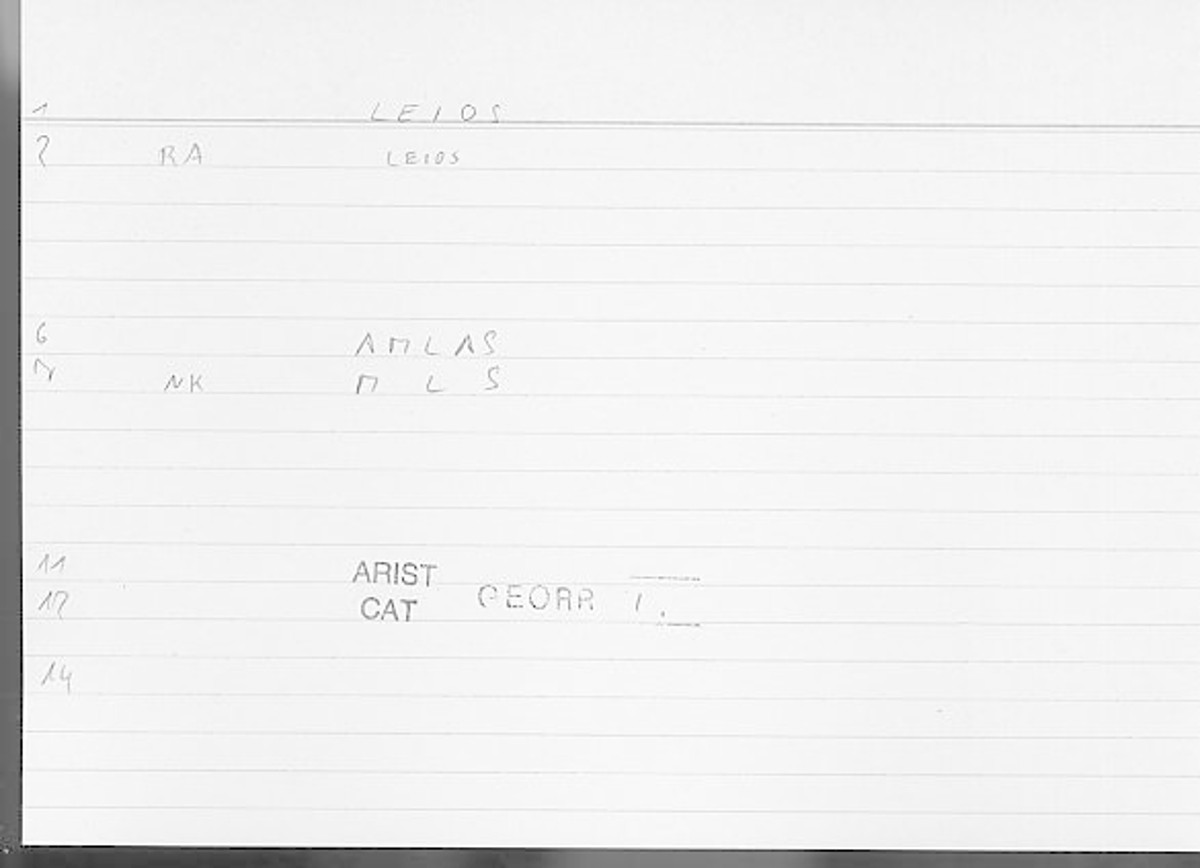 1 LEIOS
2 RA LEIOS
6 AMLAS
7 NK M L S
11 ARIST
12 CAT GEORR I.
14